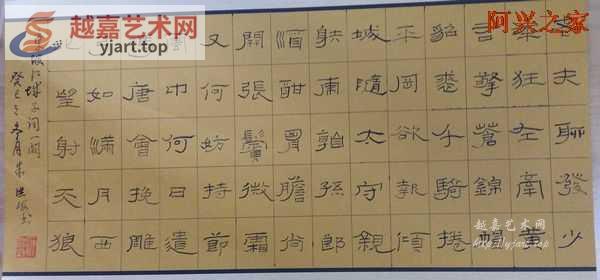 老夫聊發少
年狂左牽黃
右擎蒼錦帽
貂裘千騎捲
平岡欲報傾
城隨太守親
射虎看孫郎
酒酣胸膽尚
開張鬢微霜
又何妨持節
雲中何日遣
馮唐會挽雕
弓如滿月西
北望射天狼
江城子詞一闋
癸巳冬月朱
越嘉艺术网
yjart.top
阿兴之家
越嘉艺术网
http://yjart.top